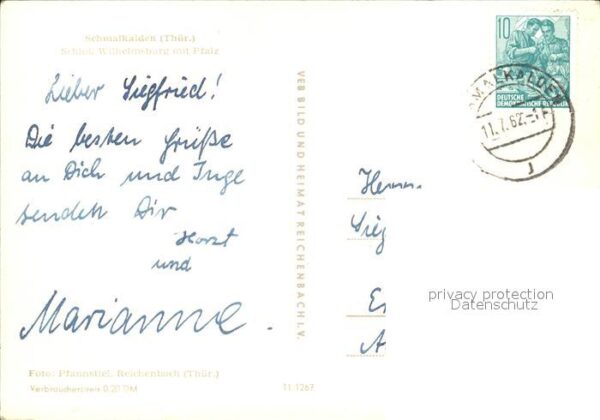 Schmalkalden (Thür.)
Schloß Wilhelmsburg mit Pfalz
Lieber Siegfried!
Die besten Grüße
an Dich und Inge
senden Dir
Horst
und
Marianne.
Foto: Pfannstiel, Reichenbach (Thür.)
Verbraucherpreis 0,20 DM
VEB BILD UND HEIMAT REICHENBACH I. V.
11 1267
10
DEUTSCHE
DEMOKRATISCHE REPUBLIK
SCHMALKALDEN
11.7.62.
J
Herrn
Sieg
E
A
privacy protection
Datenschutz